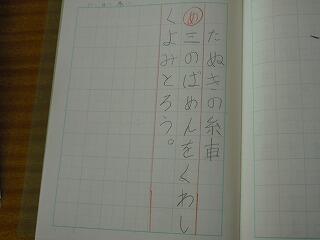 たぬきの糸車
め 三のばめんをくわし
くよみとろう。